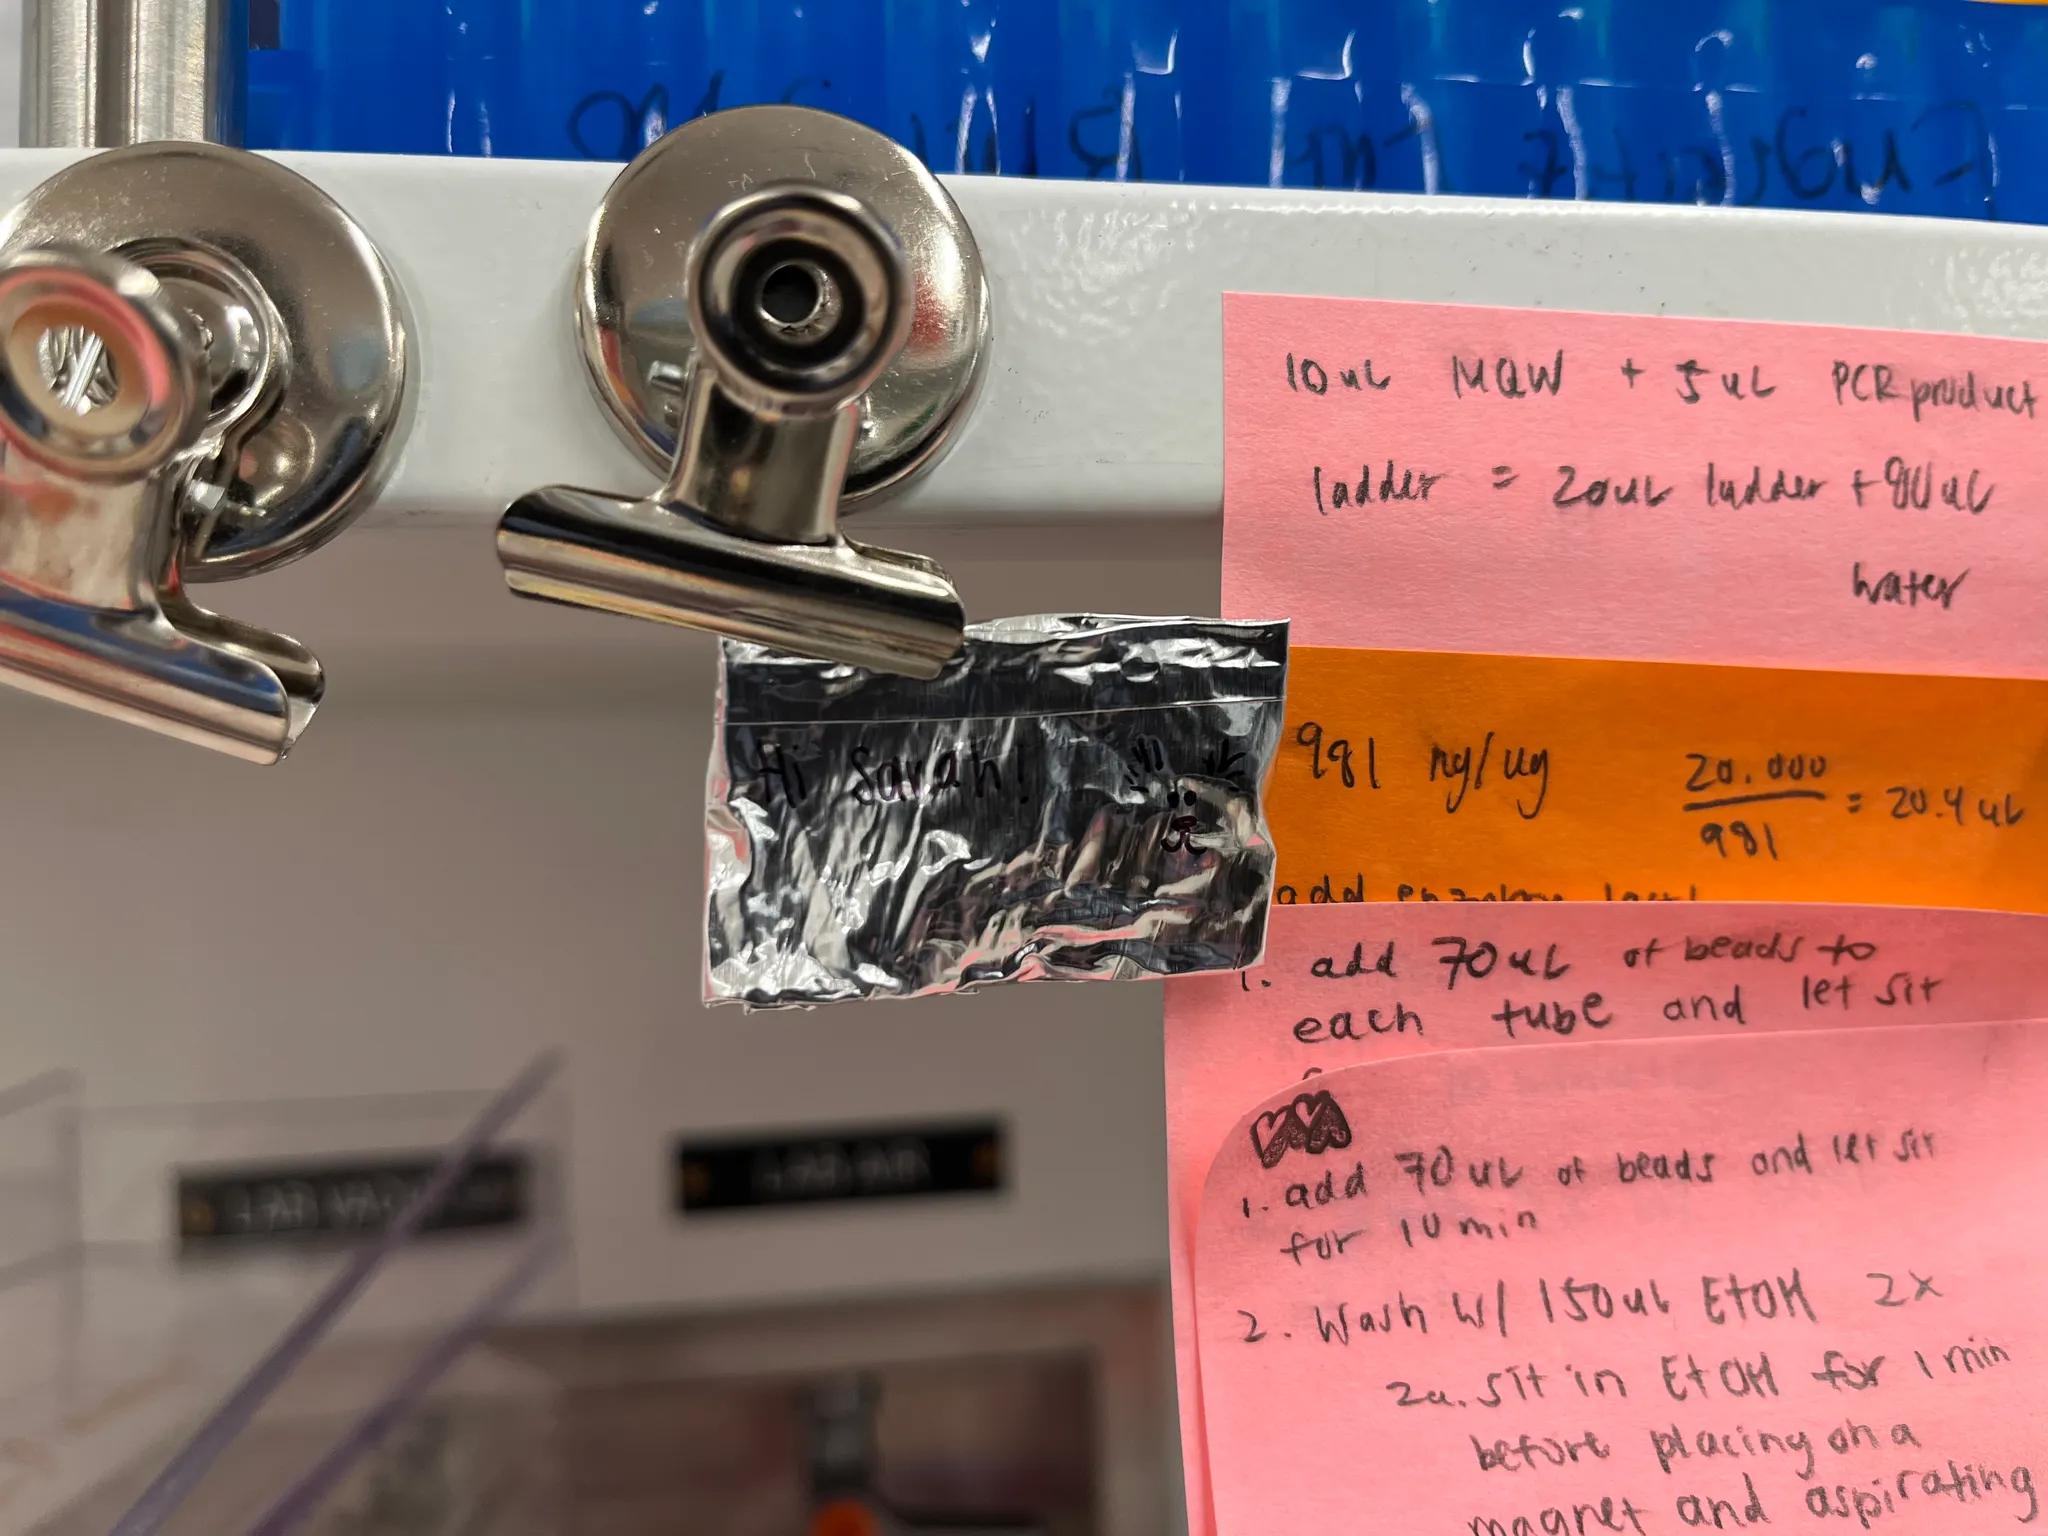 10 uL MQW + 5 uL PCR product
ladder = 20uL ladder + 80 uL
water
Hi Sarah!
981 ng/ug 20.000 / 981 = 20.4 uL
add enzyme last!
1. add 70 uL of beads to
each tube and let sit
1. add 70 uL of beads and let sit
for 10 min
2. Wash w/ 150 uL EtOH 2x
2a. sit in EtOH for 1 min
before placing on a
magnet and aspirating